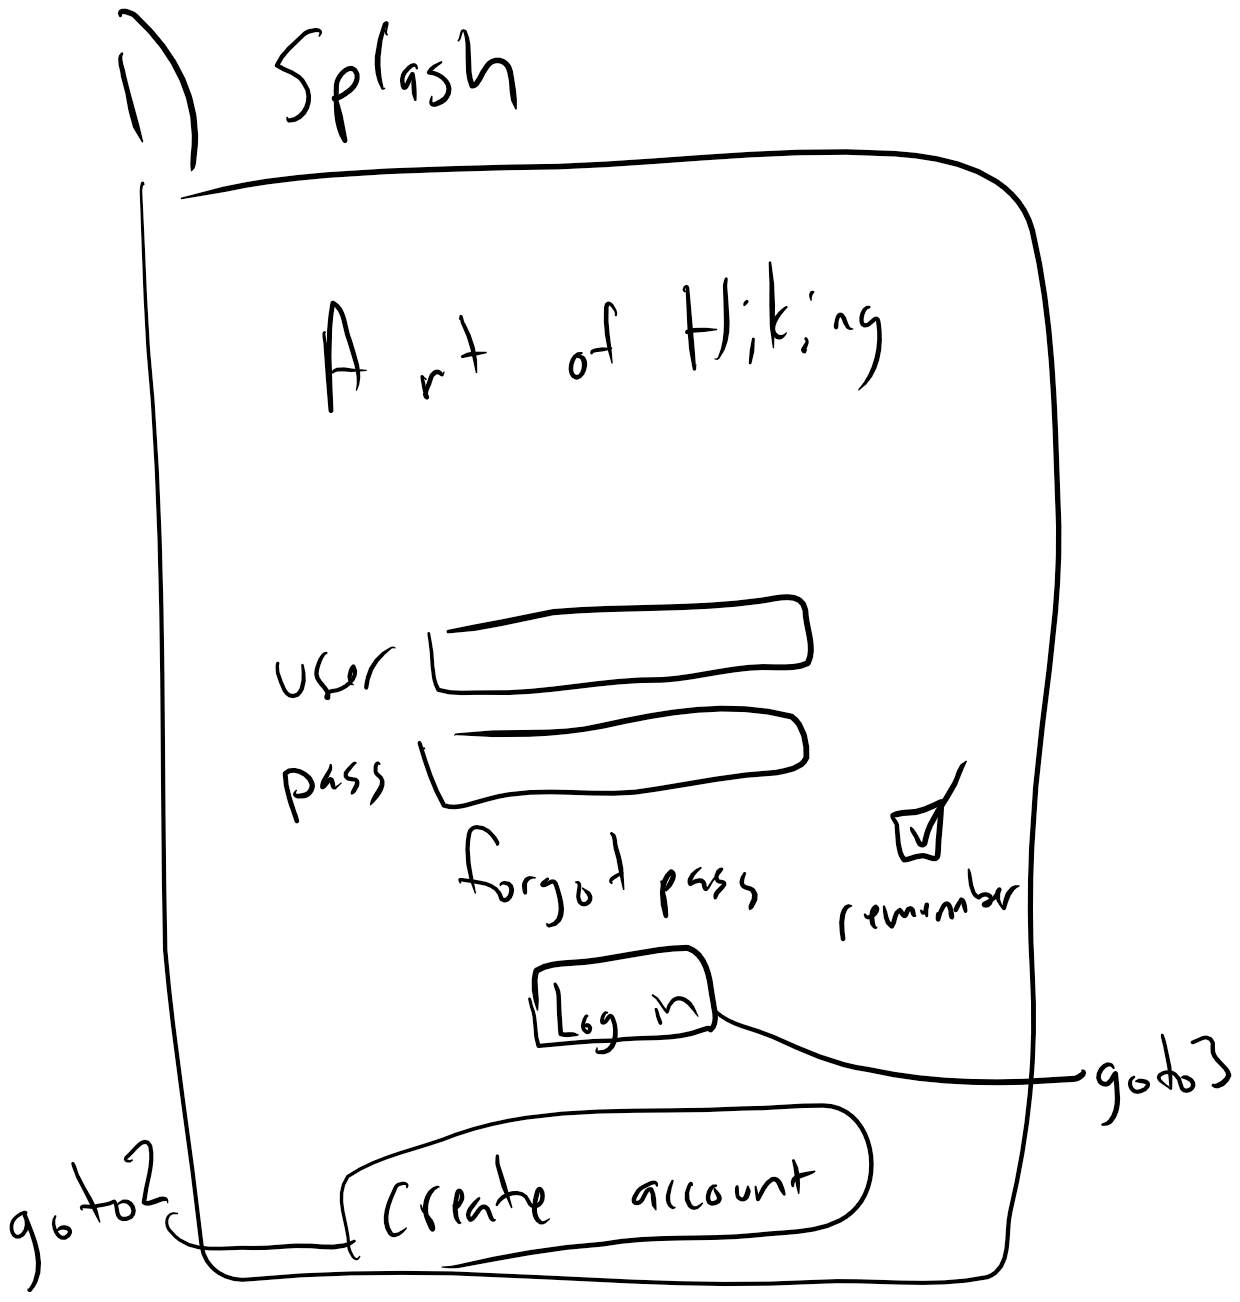 1) Splash
Art of Hiking
user
pass
forgot pass
remember
Log in
goto3
goto2
Create account